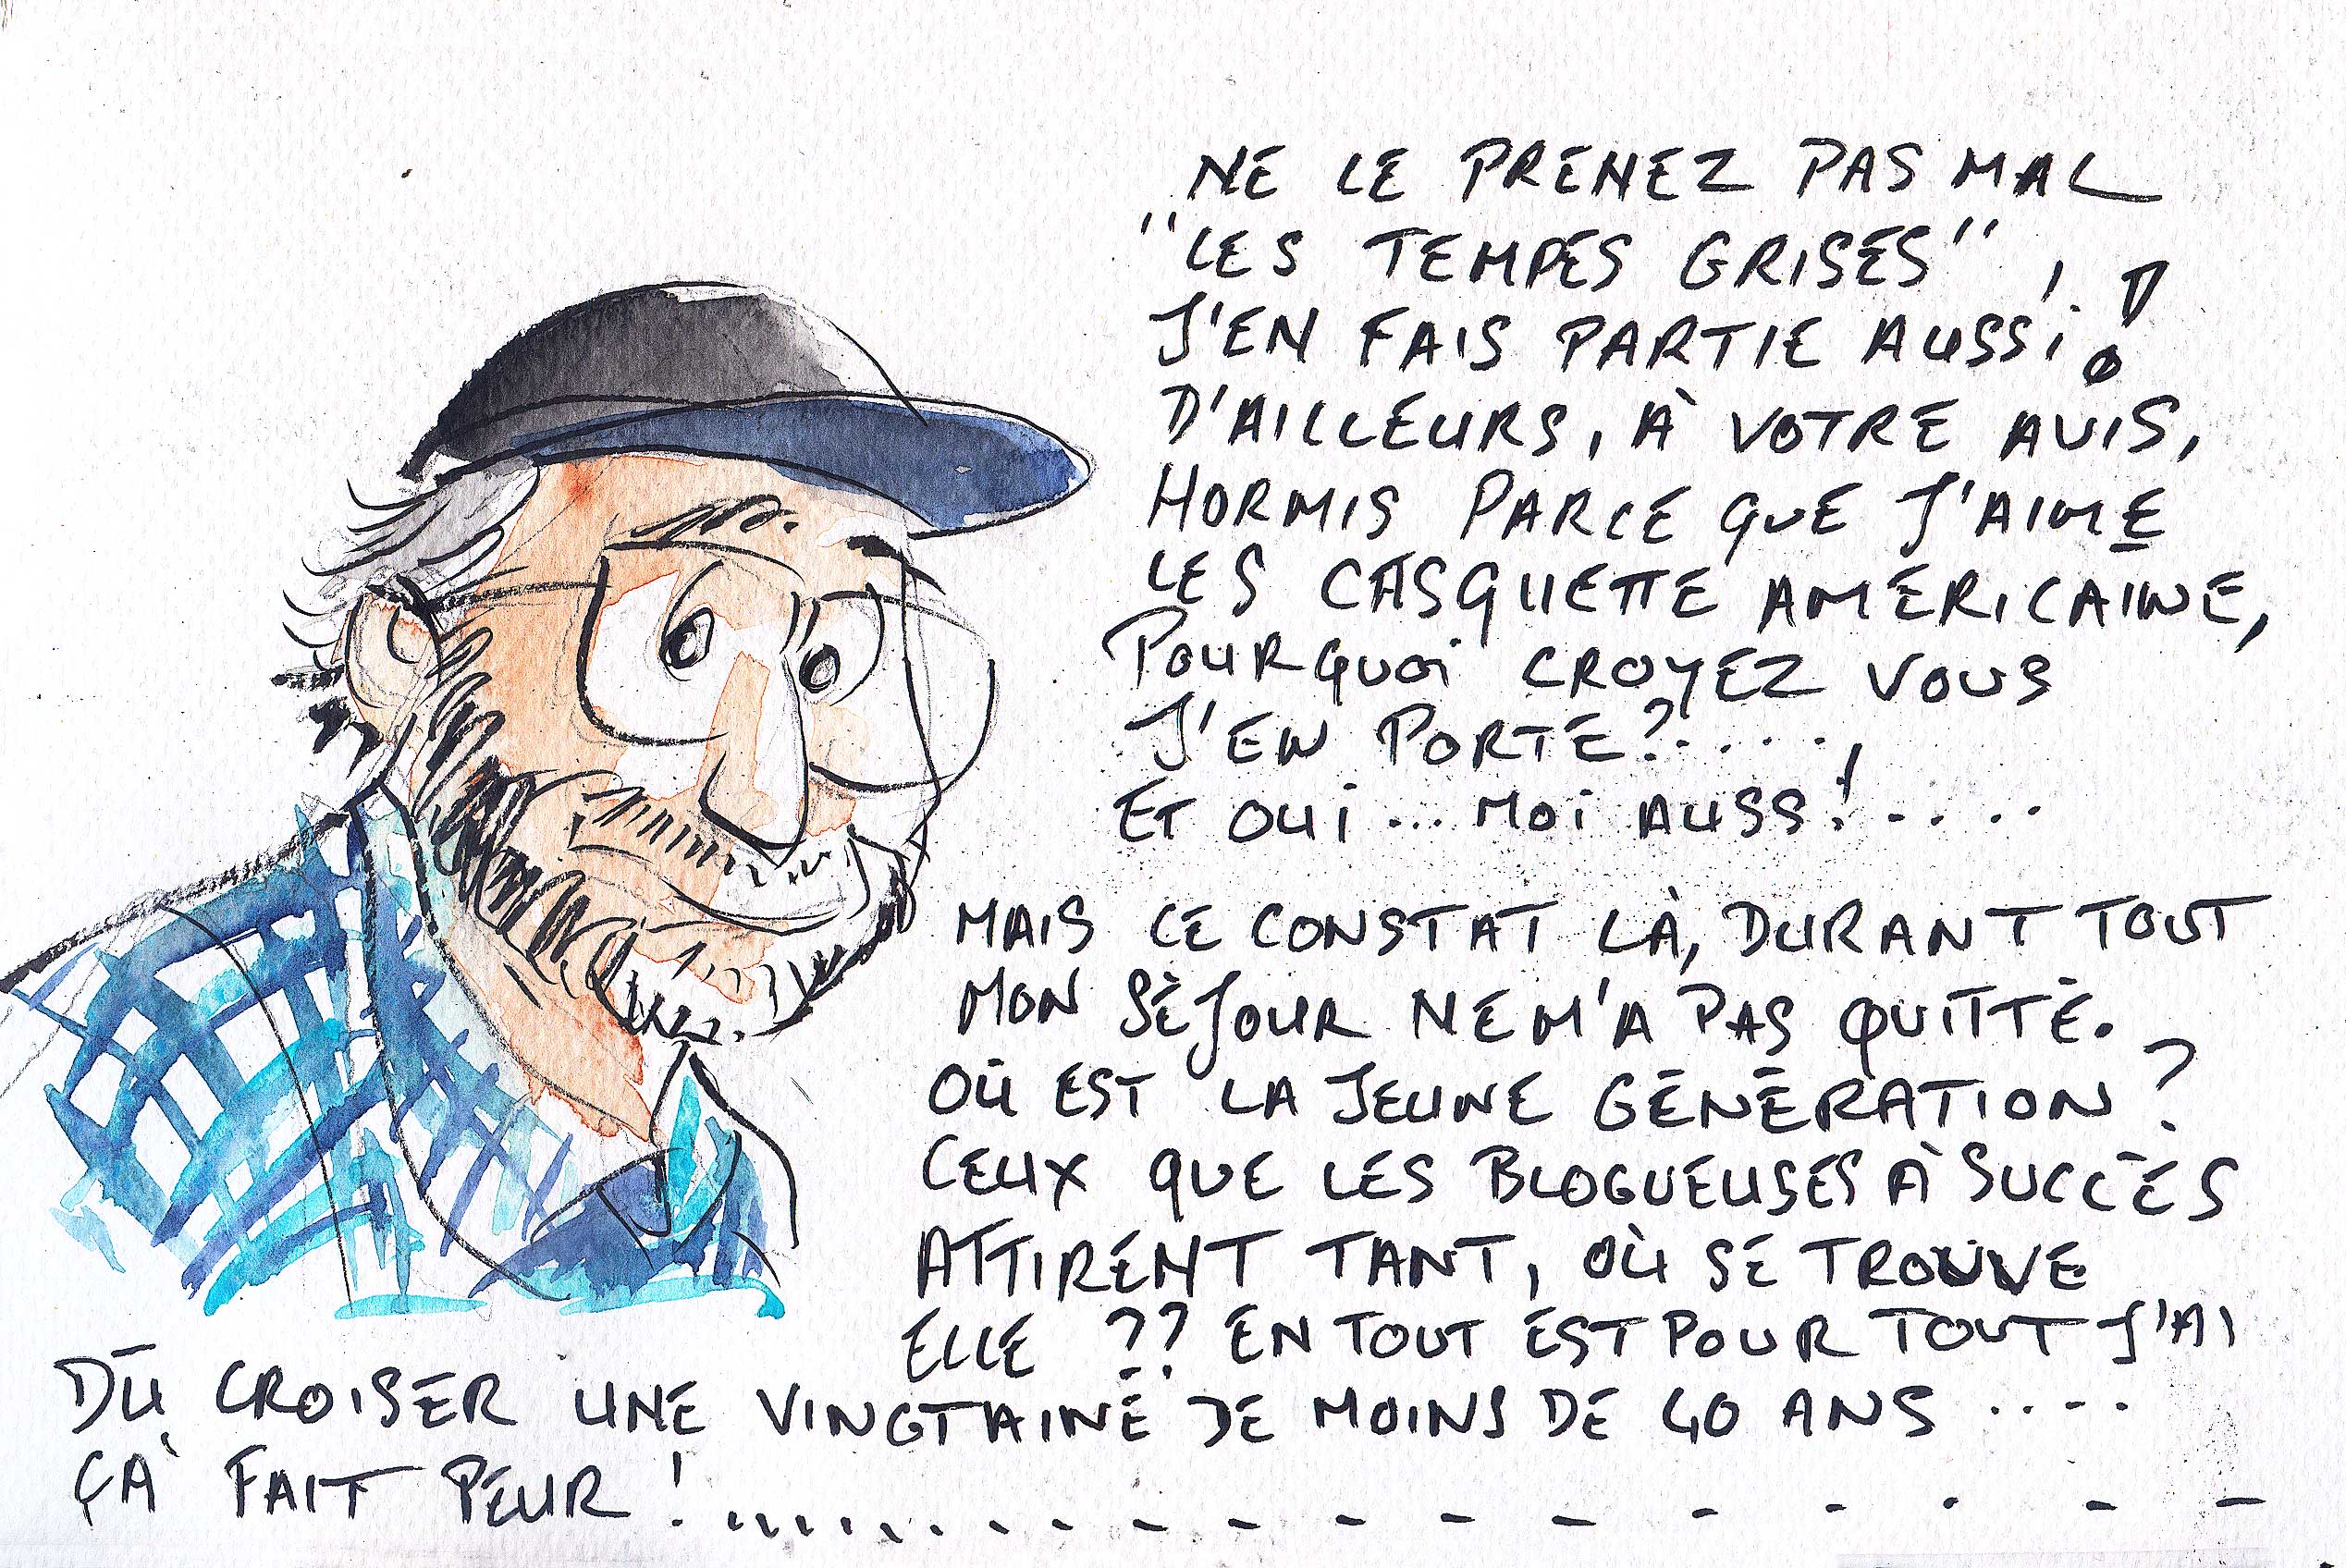 NE LE PRENEZ PAS MAL
"LES TEMPES GRISES",
J'EN FAIS PARTIE AUSSI!
D'AILLEURS, À VOTRE AVIS,
HORMIS PARCE QUE J'AIME
LES CASQUETTE AMERICAINE,
POURQUOI CROYEZ VOUS
J'EN PORTE?.....
ET OUI... MOI AUSSI....
MAIS CE CONSTAT LÀ, DURANT TOUT
MON SÉJOUR NE M'A PAS QUITTÉ.
OÙ EST LA JEUNE GÉNÉRATION?
CEUX QUE LES BLOGUEUSES À SUCCÈS
ATTIRENT TANT, OÙ SE TROUVE
ELLE ?? EN TOUT EST POUR TOUT J'AI
DÛ CROISER UNE VINGTAINE DE MOINS DE 40 ANS ....
ÇA FAIT PEUR!....................